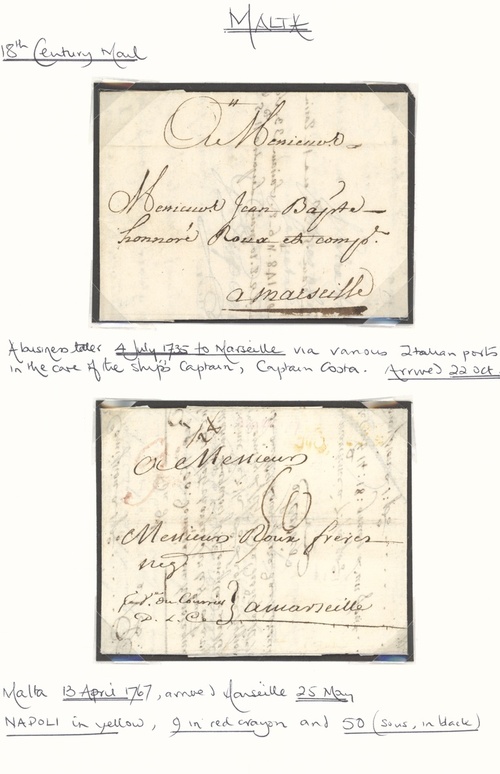 MALTA
18th Century Mail
A Messieurs
Monsieur Jean Bapte
honnoré Roux et compe.
a marseille
A business letter 4 July 1735 to Marseille via various Italian ports
in the care of the ship's Captain, Captain Costa. Arrived 22 Oct.
A Messieurs
Messieurs Roux freres
negt
a marseille
Malta 13 April 1767, arrived Marseille 25 May
NAPOLI in yellow, 9 in red crayon and 50 (sous, in black)